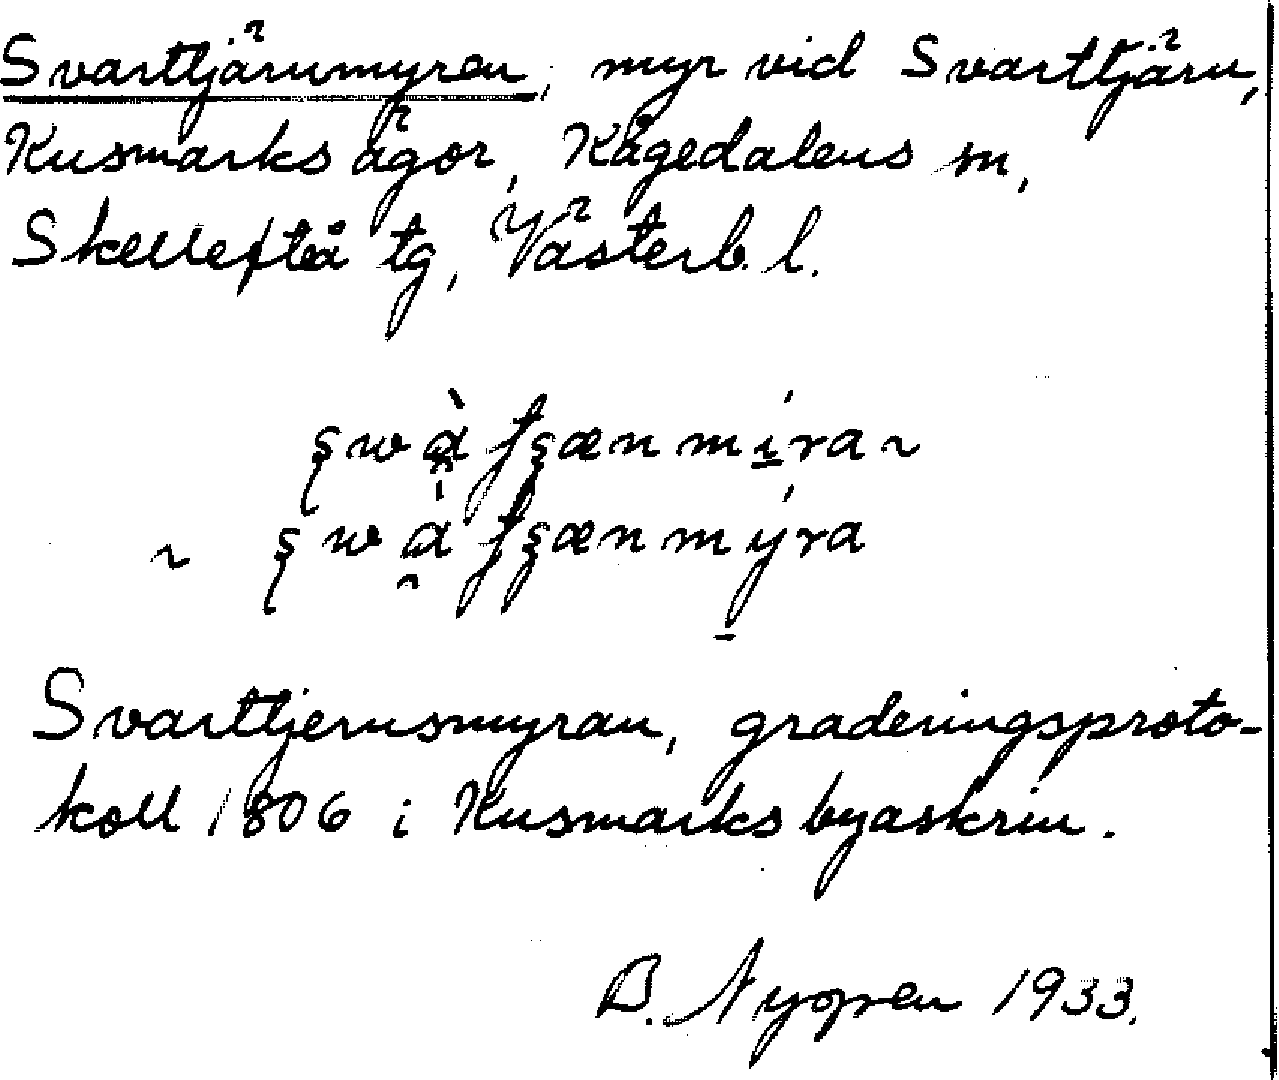 Svarttjärnmyren, myr vid Svarttjärn,
Kusmarks ägor, Kågedalens sn,
Skellefteå tg, Västerb. l.
~
~
Svarttjernsmyran, graderingsproto-
koll 1806 i Kusmarks byaskrin.
B. Nygren 1933.